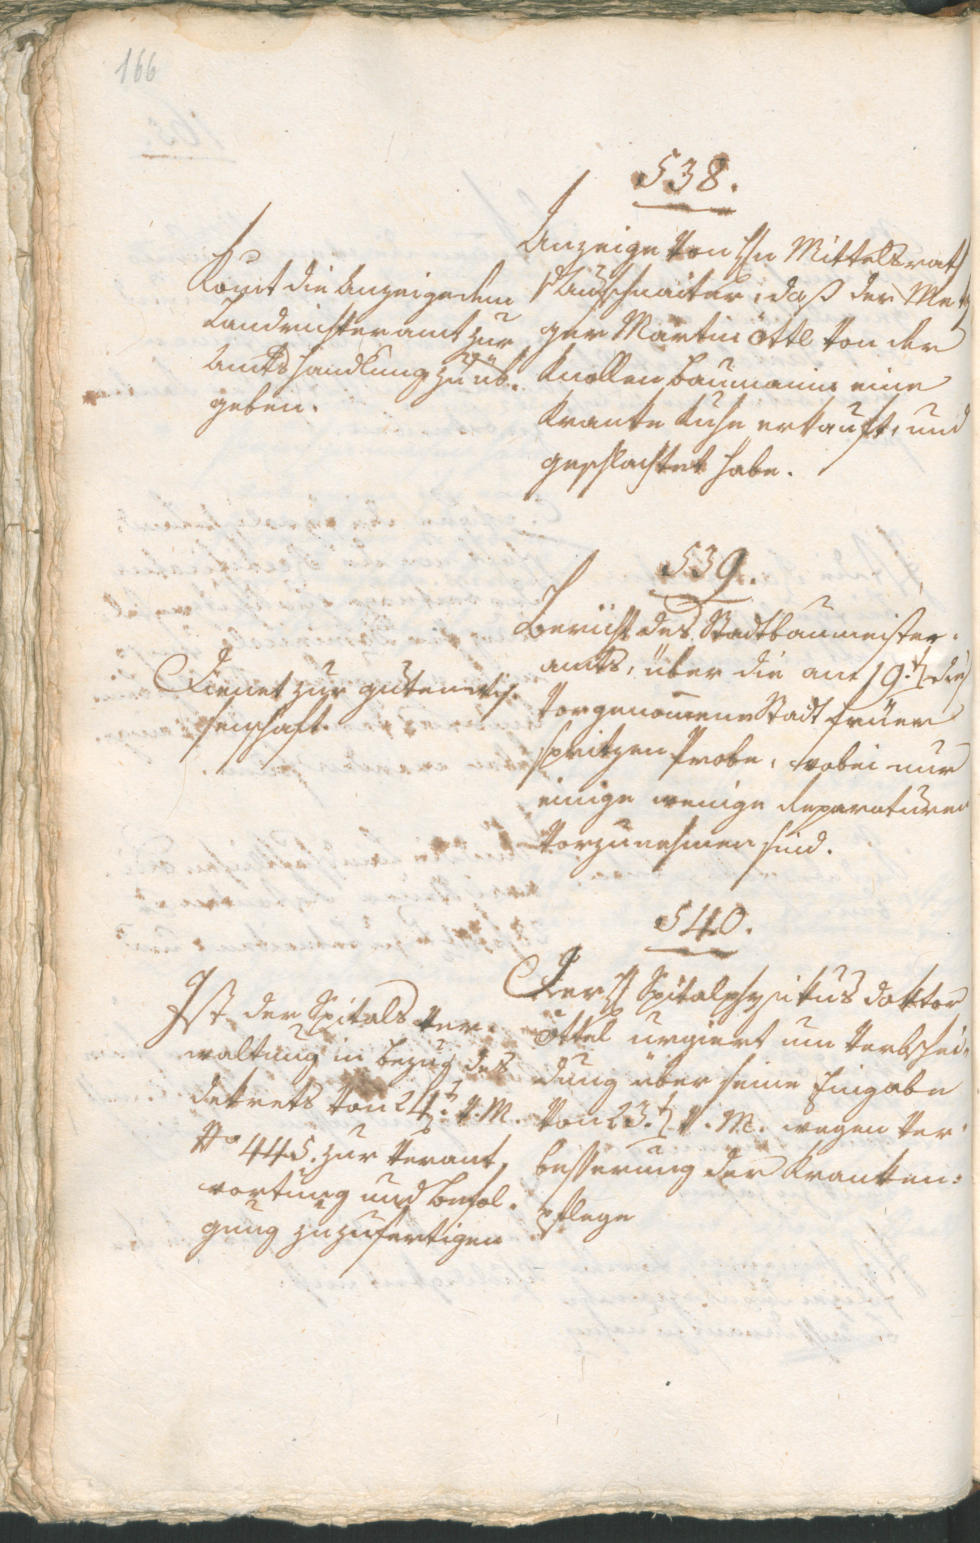 166
538.
Anzeige von Hn Mittelsrath
Stauschnaiter, daß der Mez
ger Martin Ottl von der
Knollen Baumanin eine
kranke Kuhe erkauft, und
geschlachtet habe.
Komt die Anzeige dem
Landrichteramt zur
Amtshandlung zu üb.
geben.
539.
Bericht des Stadtbaumeister-
amts, über die am 19.t dies
vorgenomene Stadt früer
spritzen Probe, wobei nur
einige wenige Reparaturen
vorzunehmen sind.
Dienet zur guten Wis-
senschaft.
540.
Der H Spitalphysikus Doktor
Ottel urgiert um Verbschei-
dung über seine Eingabe
von 23.t v. M. wegen Ver-
besserung der Kranken-
pflege
Ist der Spitals Ver-
waltung in Bezug des
Dekrets von 24.t v. M.
No 445. zur Verant-
wortung und Befol-
gung zuzufertigen